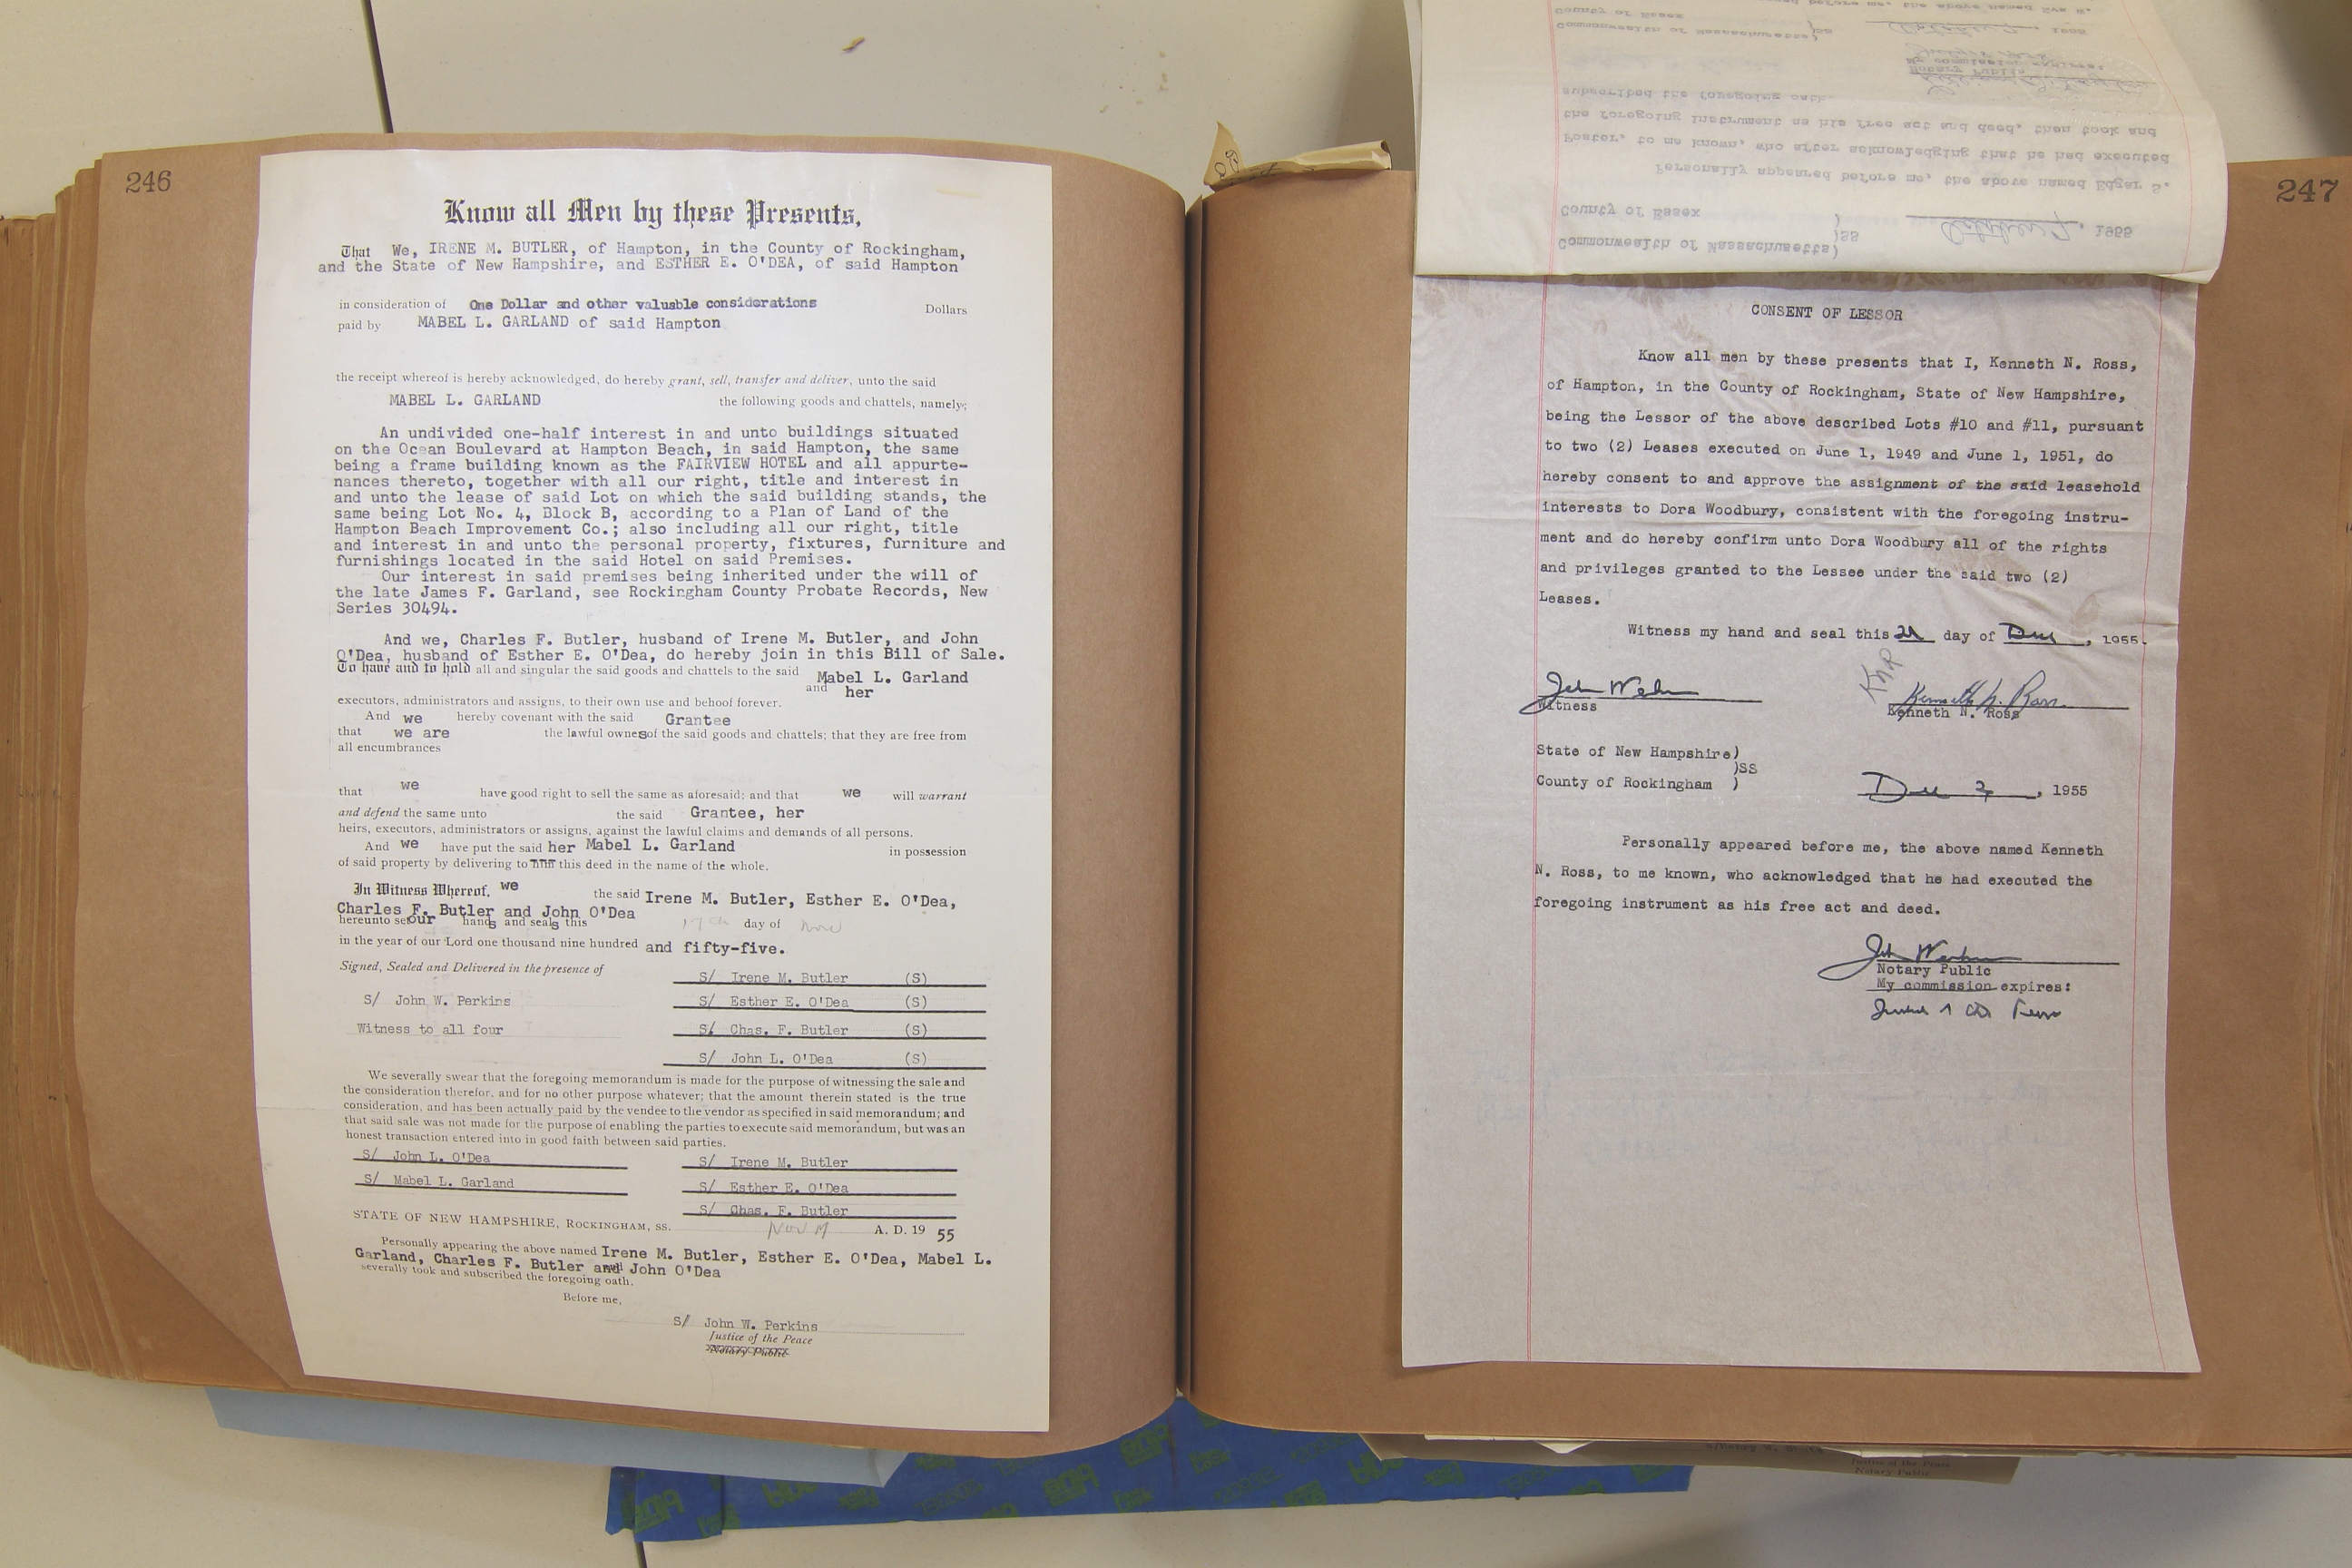 246
Know all Men by these Presents,
That We, IRENE M. BUTLER, of Hampton, in the County of Rockingham,
and the State of New Hampshire, and ESTHER E. O'DEA, of said Hampton
in consideration of One Dollar and other valuable considerations Dollars
paid by MABEL L. GARLAND of said Hampton
the receipt whereof is hereby acknowledged, do hereby grant, sell, transfer and deliver, unto the said
MABEL L. GARLAND the following goods and chattels, namely;
An undivided one-half interest in and unto buildings situated
on the Ocean Boulevard at Hampton Beach, in said Hampton, the same
being a frame building known as the FAIRVIEW HOTEL and all appurte-
nances thereto, together with all our right, title and interest in
and unto the lease of said Lot on which the said building stands, the
same being Lot No. 4, Block B, according to a Plan of Land of the
Hampton Beach Improvement Co.; also including all our right, title
and interest in and unto the personal property, fixtures, furniture and
furnishings located in the said Hotel on said Premises.
Our interest in said premises being inherited under the will of
the late James F. Garland, see Rockingham County Probate Records, New
Series 30494.
And we, Charles F. Butler, husband of Irene M. Butler, and John
O'Dea, husband of Esther E. O'Dea, do hereby join in this Bill of Sale.
To have and to hold all and singular the said goods and chattels to the said Mabel L. Garland
and her
executors, administrators and assigns, to their own use and behoof forever.
And we hereby covenant with the said Grantee
that we are the lawful owners of the said goods and chattels; that they are free from
all encumbrances
that we have good right to sell the same as aforesaid; and that we will warrant
and defend the same unto the said Grantee, her
heirs, executors, administrators or assigns, against the lawful claims and demands of all persons.
And we have put the said Mabel L. Garland in possession
of said property by delivering to her this deed in the name of the whole.
In Witness Whereof, we the said Irene M. Butler, Esther E. O'Dea,
Charles F. Butler and John O'Dea
hereunto set our hands and seals this 17th day of Nov
in the year of our Lord one thousand nine hundred and fifty-five.
Signed, Sealed and Delivered in the presence of
S/ Irene M. Butler (S)
S/ John W. Perkins S/ Esther E. O'Dea (S)
Witness to all four S/ Chas. F. Butler (S)
S/ John L. O'Dea (S)
We severally swear that the foregoing memorandum is made for the purpose of witnessing the sale and
the consideration therefor, and for no other purpose whatever; that the amount therein stated is the true
consideration, and has been actually paid by the vendee to the vendor as specified in said memorandum; and
that said sale was not made for the purpose of enabling the parties to execute said memorandum, but was an
honest transaction entered into in good faith between said parties.
S/ John L. O'Dea S/ Irene M. Butler
S/ Mabel L. Garland S/ Esther E. O'Dea
S/ Chas. F. Butler
STATE OF NEW HAMPSHIRE, ROCKINGHAM, SS. Nov 17 A. D. 19 55
Personally appearing the above named Irene M. Butler, Esther E. O'Dea, Mabel L.
Garland, Charles F. Butler and John O'Dea
severally took and subscribed the foregoing oath.
Before me,
S/ John W. Perkins
Justice of the Peace
Notary Public
247
County of Essex
Commonwealth of Massachusetts) SS 1955
My commission expires:
Notary Public
subscribed the foregoing oath.
the foregoing instrument as his free act and deed, then took and
Foster, to me known, who after acknowledging that he had executed
Personally appeared before me, the above named Edgar S.
County of Essex
Commonwealth of Massachusetts) )SS October 7, 1955
CONSENT OF LESSOR
Know all men by these presents that I, Kenneth N. Ross,
of Hampton, in the County of Rockingham, State of New Hampshire,
being the Lessor of the above described Lots #10 and #11, pursuant
to two (2) Leases executed on June 1, 1949 and June 1, 1951, do
hereby consent to and approve the assignment of the said leasehold
interests to Dora Woodbury, consistent with the foregoing instru-
ment and do hereby confirm unto Dora Woodbury all of the rights
and privileges granted to the Lessee under the said two (2)
Leases.
Witness my hand and seal this day of Dec, 1955.
KNR
Kenneth N. Ross
Witness Kenneth N. Ross
State of New Hampshire)
)SS
County of Rockingham ) Dec 2, 1955
Personally appeared before me, the above named Kenneth
N. Ross, to me known, who acknowledged that he had executed the
foregoing instrument as his free act and deed.
Notary Public
My commission expires:
Justice of the Peace
Notary Public